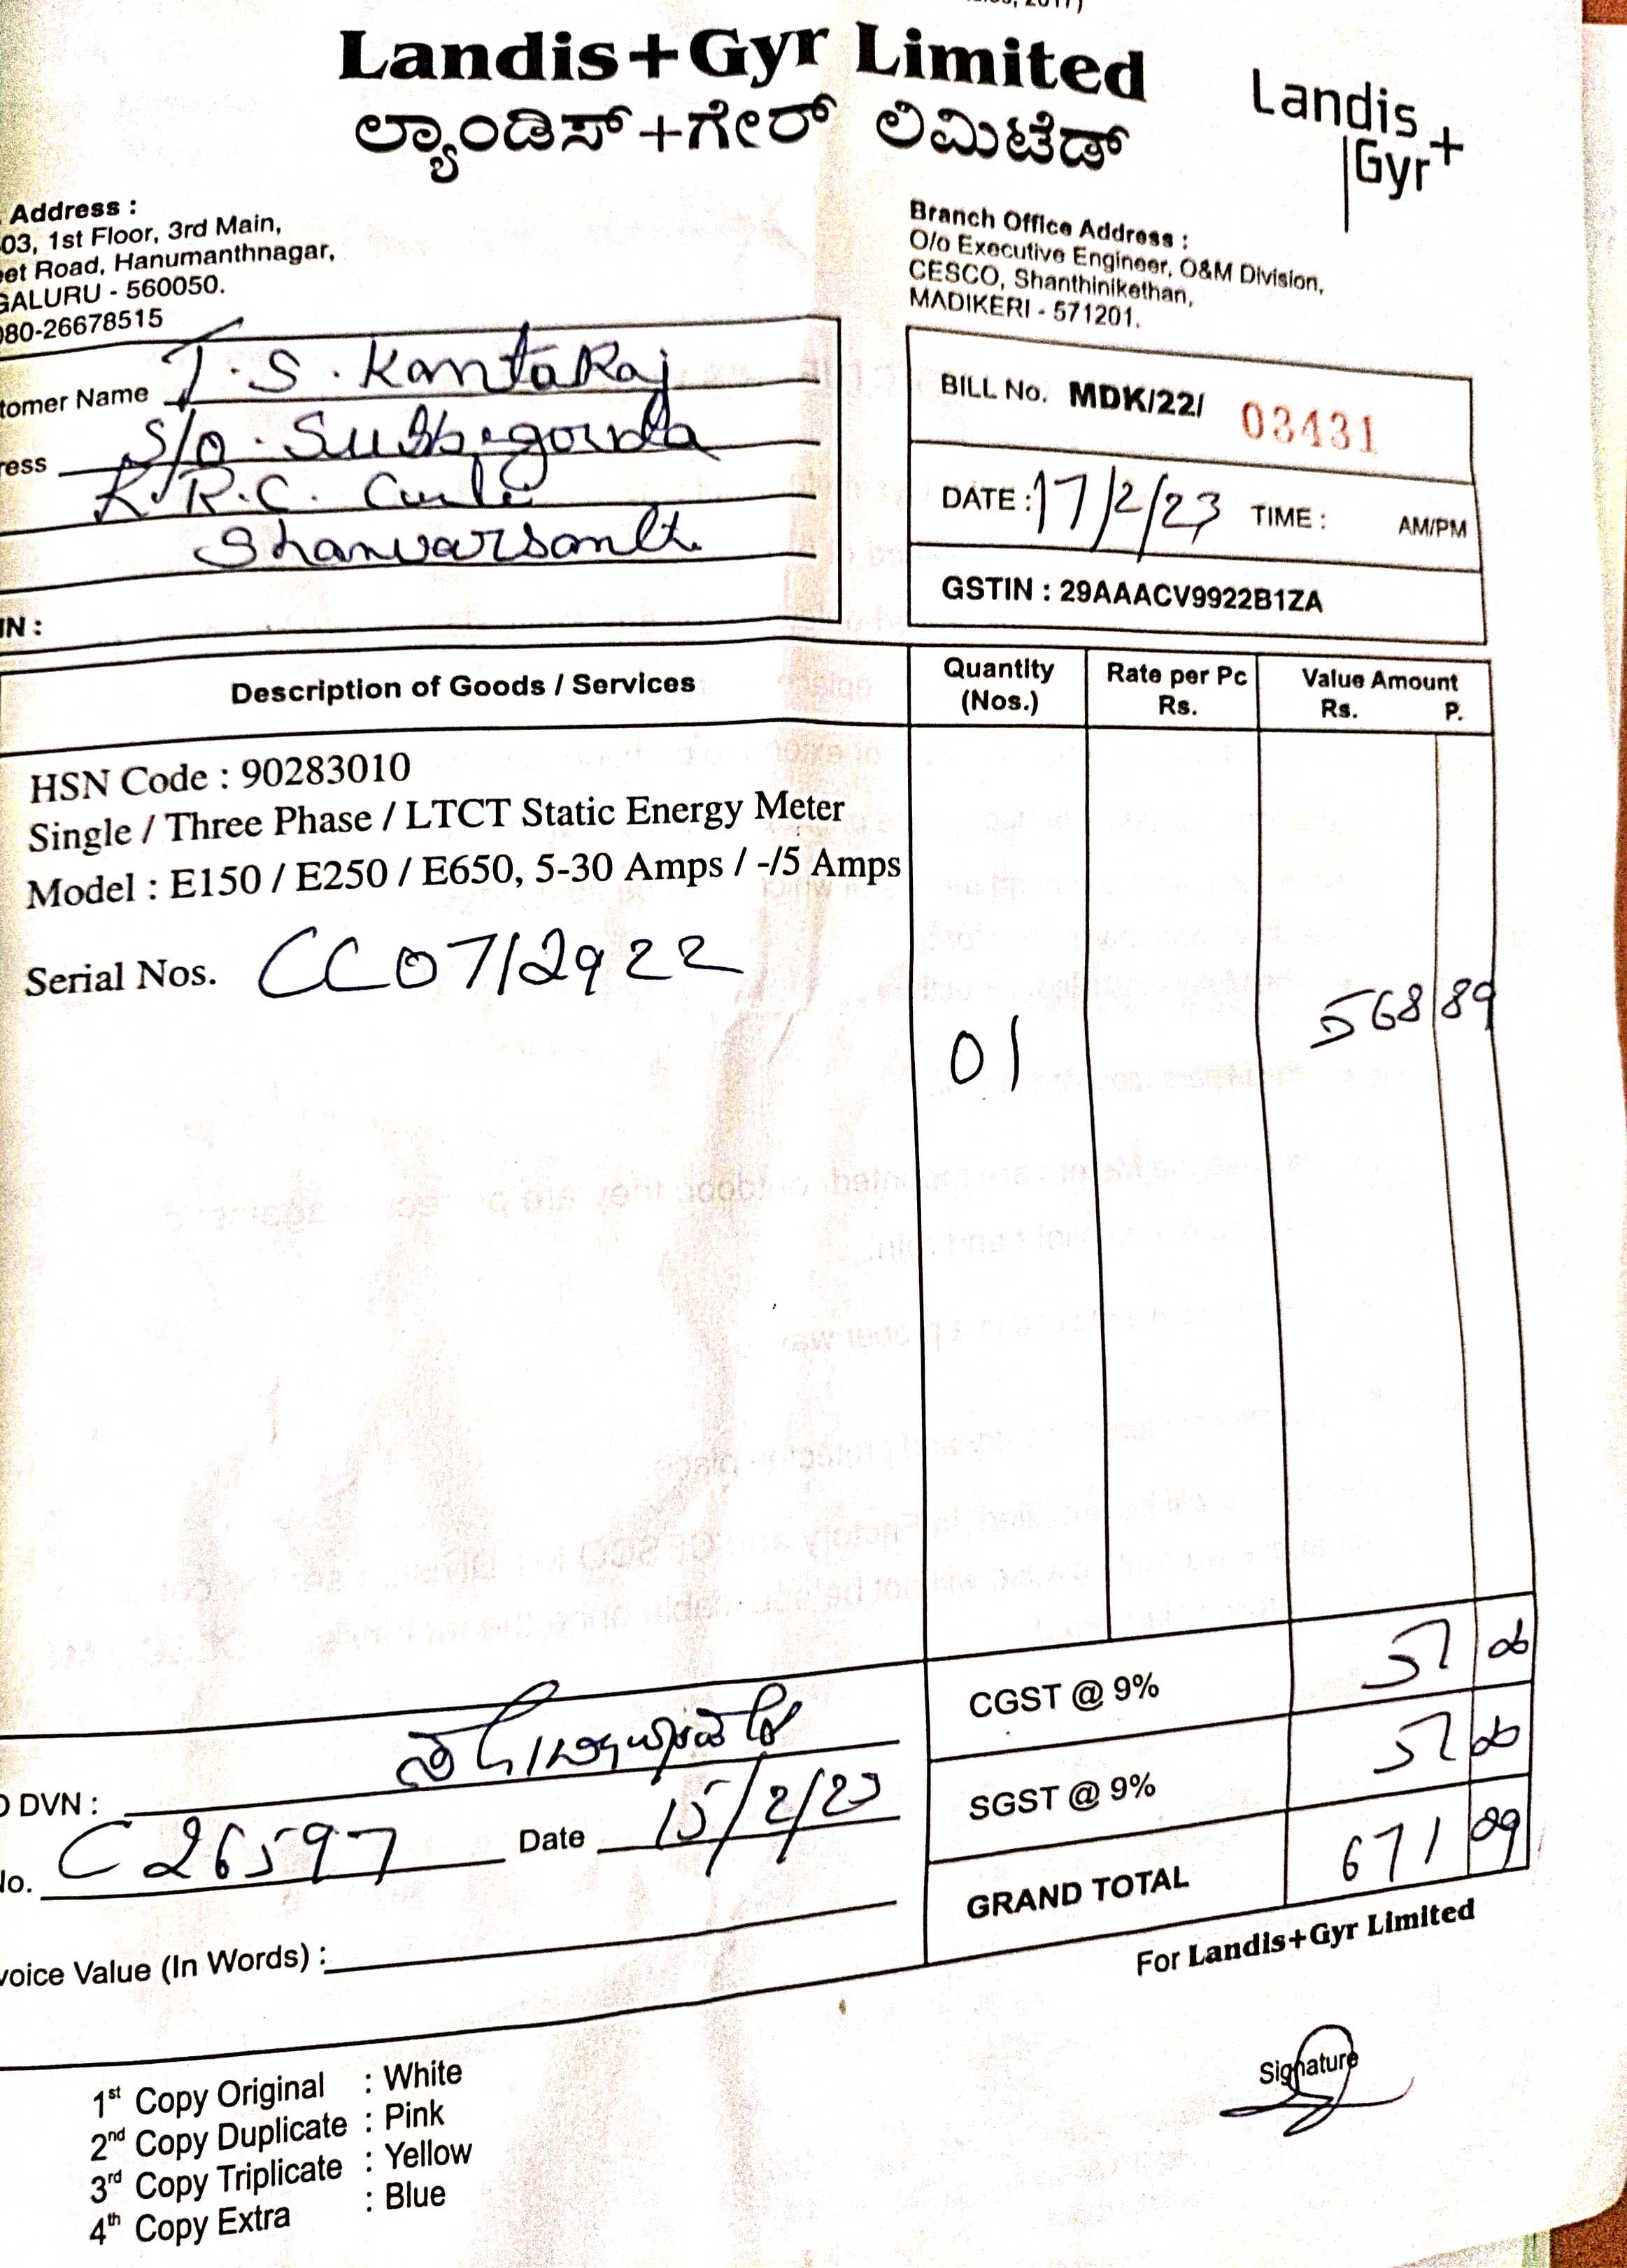 , 2017)
Landis+Gyr Limited
ಲ್ಯಾಂಡಿಸ್+ಗೇರ್ ಲಿಮಿಟೆಡ್
Landis
Gyr+
Address :
03, 1st Floor, 3rd Main,
et Road, Hanumanthnagar,
GALURU - 560050.
080-26678515
Branch Office Address :
O/o Executive Engineer, O&M Division,
CESCO, Shanthinikethan,
MADIKERI - 571201.
tomer Name T.S. Kantaraj
ress S/o. Subbegowda
K.R.C. Circle
Shanivarsanthe
IN :
BILL No. MDK/22/ 03431
DATE : 17/2/23 TIME : AM/PM
GSTIN : 29AAACV9922B1ZA
Description of Goods / Services Quantity (Nos.) Rate per Pc Rs. Value Amount Rs. P.
HSN Code : 90283010
Single / Three Phase / LTCT Static Energy Meter
Model : E150 / E250 / E650, 5-30 Amps / -/5 Amps
Serial Nos. CC0712922
01 568 89
CGST @ 9% 51
SGST @ 9% 51
GRAND TOTAL 671 29
O DVN :
No. C26597 Date 15/2/23
voice Value (In Words) :
For Landis+Gyr Limited
Signature
1st Copy Original : White
2nd Copy Duplicate : Pink
3rd Copy Triplicate : Yellow
4th Copy Extra : Blue